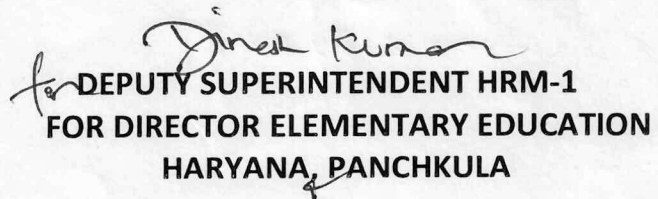 Dinesh Kumar
for DEPUTY SUPERINTENDENT HRM-1
FOR DIRECTOR ELEMENTARY EDUCATION
HARYANA, PANCHKULA